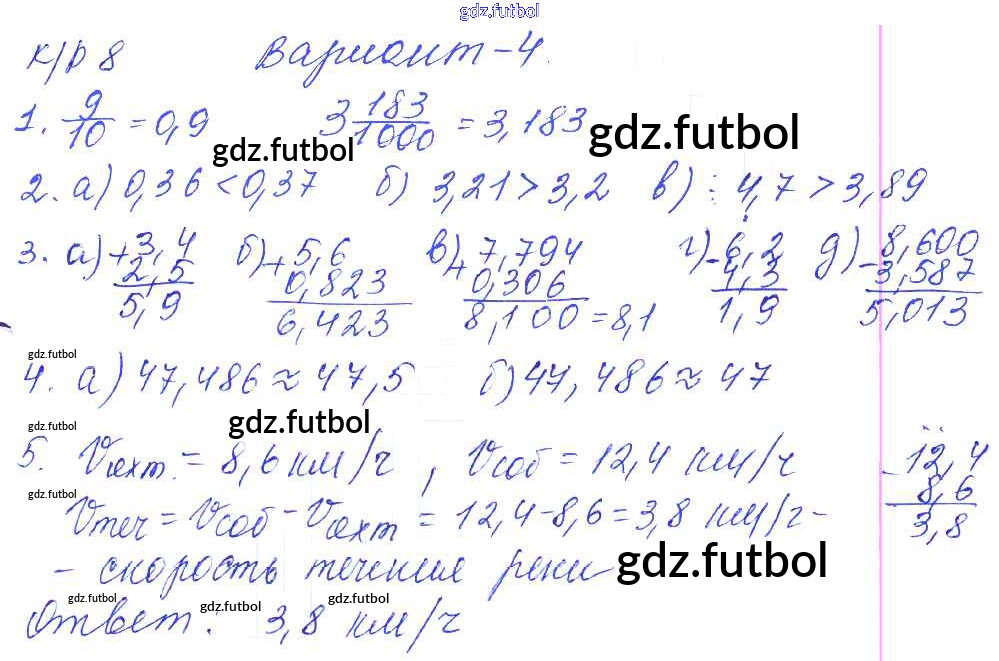 gdz.futbol
К/р 8 Вариант-4.
1. 9/10 = 0,9 3 183/1000 = 3,183
gdz.futbol gdz.futbol
2. а) 0,36 < 0,37 б) 3,21 > 3,2 в) : 4,7 > 3,89
3. а) + 3,4 б) + 5,6 в) + 7,794 г) - 6,2 д) - 8,600
2,5 0,823 0,306 4,3 3,587
5,9 6,423 8,100 = 8,1 1,9 5,013
gdz.futbol
4. а) 47,486 ≈ 47,5 б) 47,486 ≈ 47
gdz.futbol gdz.futbol
5. Vяхт. = 8,6 км/ч , Vсоб = 12,4 км/ч - 12,4
gdz.futbol 8,6
Vтеч = Vсоб - Vяхт = 12,4-8,6 = 3,8 км/ч - 3,8
- скорость течения реки gdz.futbol
gdz.futbol gdz.futbol gdz.futbol
Ответ: 3,8 км/ч